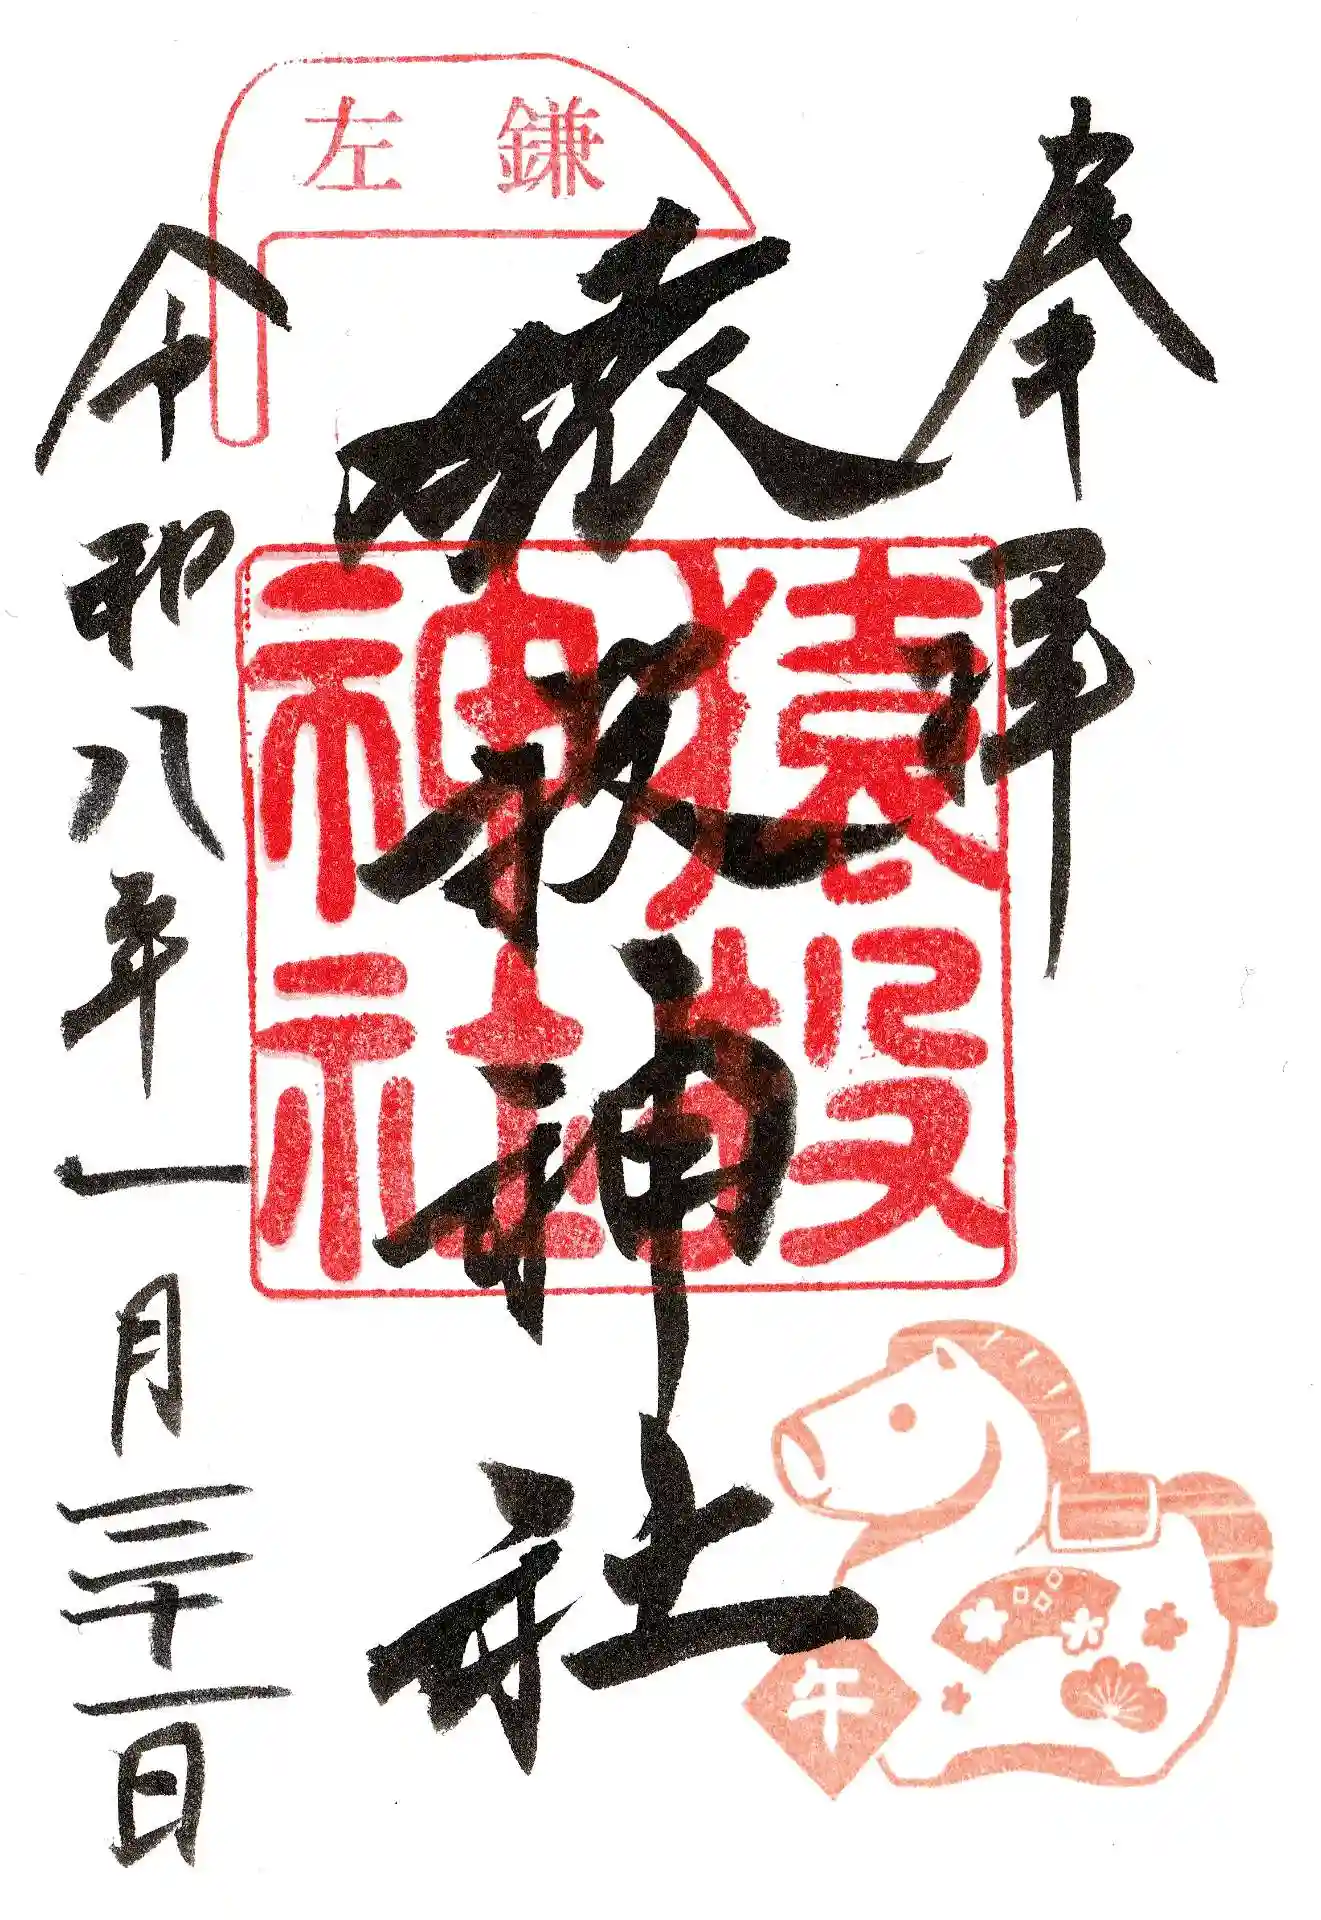 奉拝
猿投神社
猿投
神社
左鎌
令和八年一月三十一日
午